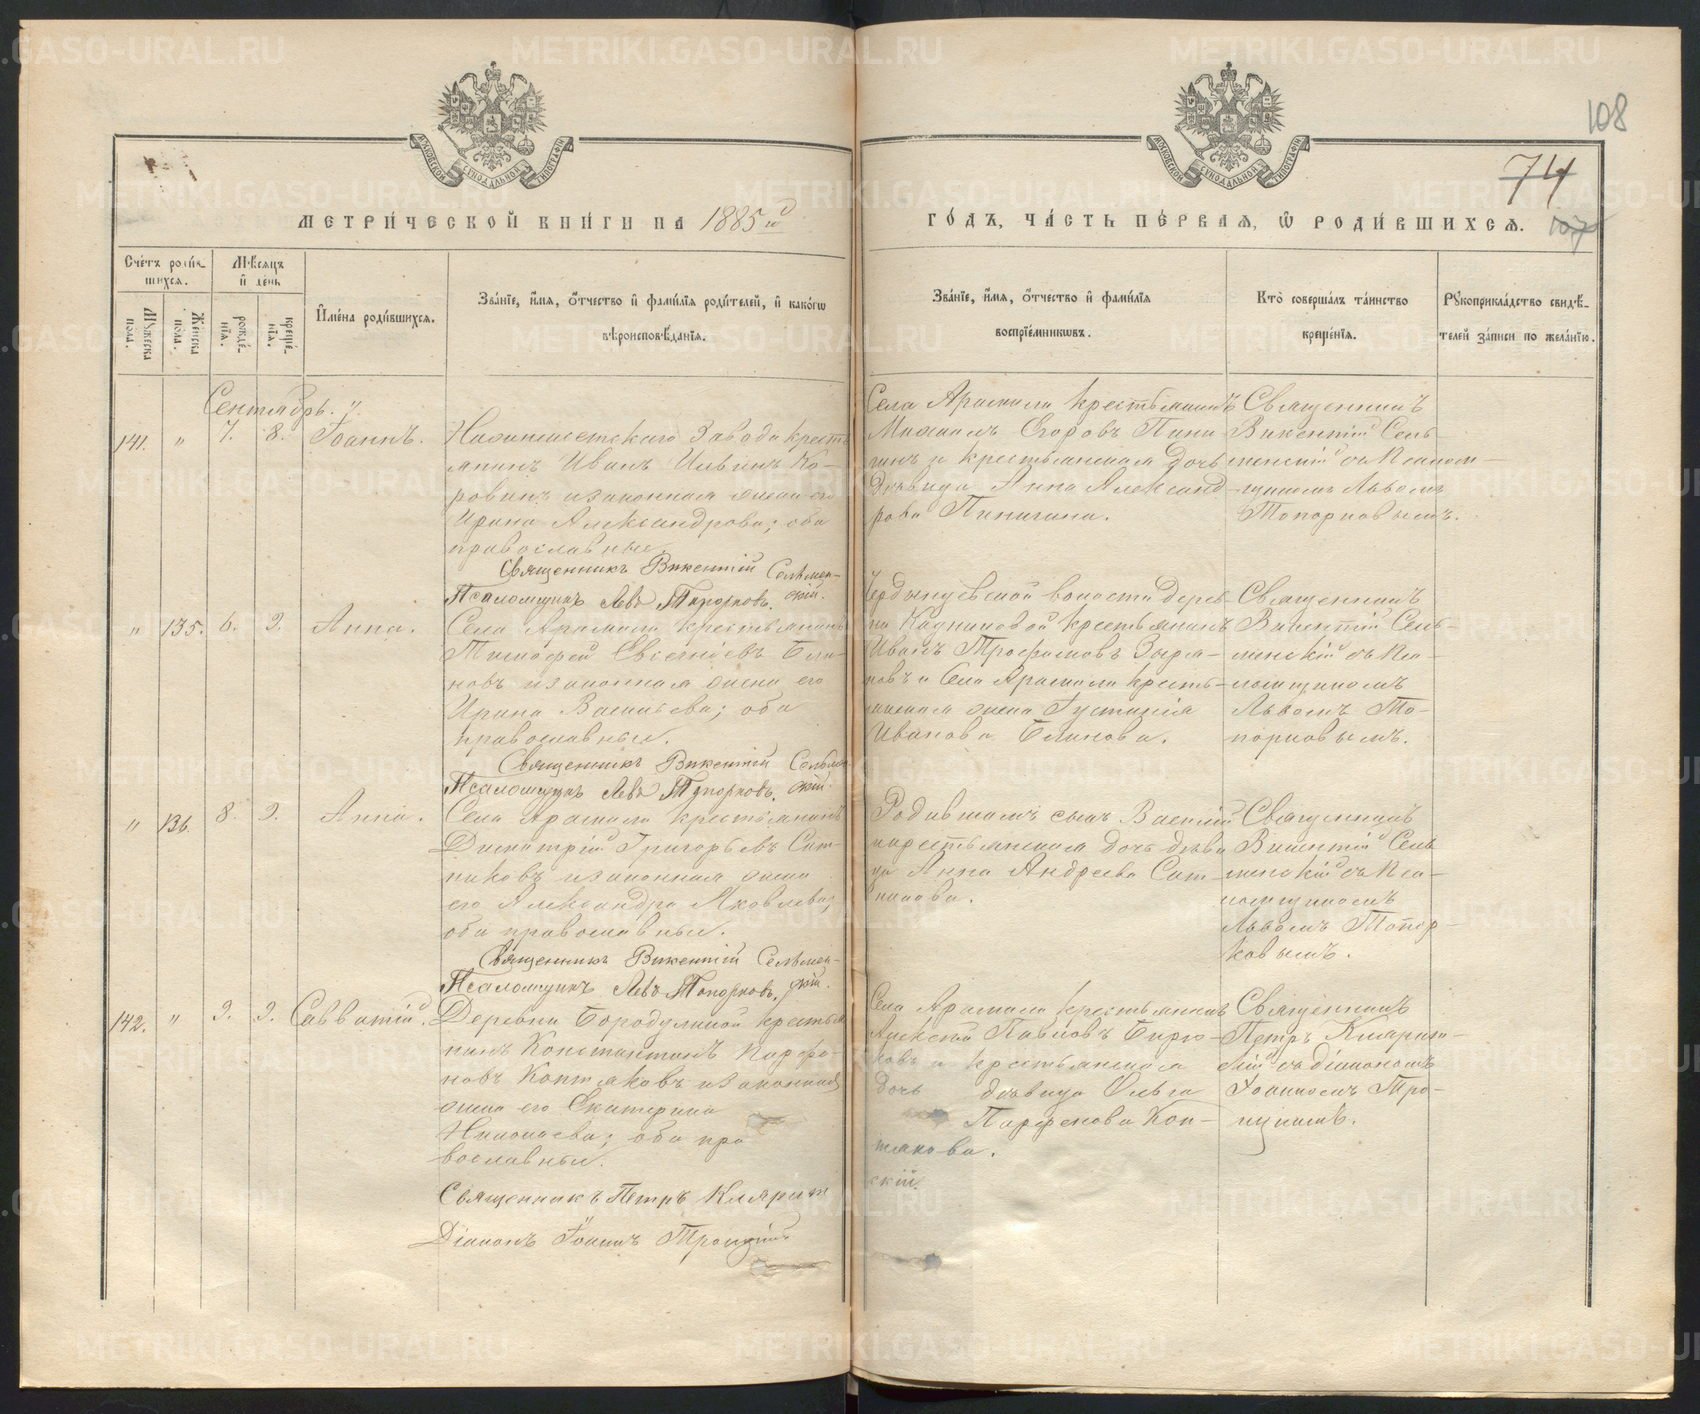 108
74
107
МЕТРИ́ЧЕСКОЙ КНИ́ГИ НА 1885 й
ГО́ДЪ, ЧА́СТЬ ПЕ́РВАѦ, Ѡ҆ РОДИ́ВШИХСѦ.
Сче́тъ роди́в-
шихсѧ.
Мѣ́сѧцъ
и҆ де́нь
Мꙋ́жеска
пола.
Же́нска
пола.
рожде́-
нїѧ.
креще́-
нїѧ.
И҆мена̀ роди́вшихсѧ.
Зва́нїе, и҆́мѧ, ѻ҆́тчество и҆ фамѝлїѧ роди́телей, и҆ како́гѡ
вѣроисповѣ́данїѧ.
Зва́нїе, и҆́мѧ, ѻ҆́тчество и҆ фамѝлїѧ
воспрїе́мникѡвъ.
Кто̀ соверша́лъ та́инство
креще́нїѧ.
Рꙋкоприкла́дство свидѣ́-
телей за́писи по жела́нїю.
Сентябрь.
141. " 7. 8. Іоаннъ.
завода кресть
янинъ Иванъ Ко-
ровинъ и законная жена его
Ирина Александрова; оба
православные.
Священникъ Викентій Сельмен-
Псаломщикъ Левъ Топорковъ. скій.
Села Арамили крестьянинъ
Михаилъ Егоровъ Пини-
гинъ и крестьянская дочь
девица Анна Александ-
рова Пинигина.
Священникъ
Викентій Сель-
менскій съ Псалом-
щикомъ Львомъ
Топорковымъ.
" 135. 6. 9. Анна.
Села Арамили крестьянинъ
Тимофей Евсѣніевъ Бли-
новъ и законная жена его
Ирина Васильева; оба
православные.
Священникъ Викентій Сельмен-
Псаломщикъ Левъ Топорковъ. скій.
волости дерев-
ни Кадниковой крестьянинъ
Иванъ Трофимовъ Зыря-
новъ и Села Арамили кресть-
янская жена Густинія
Иванова Блинова.
Священникъ
Викентій Сель-
менскій съ Пса-
ломщикомъ
Львомъ То-
порковымъ.
" 136. 8. 9. Анна.
Села Арамили крестьянинъ
Димитрій Григорьевъ Сит-
никовъ и законная жена
его Александра Яковлева;
оба православные.
Священникъ Викентій Сельмен-
Псаломщикъ Левъ Топорковъ. скій.
Родившаго сынъ Василій
и крестьянская дочь деви
ца Анна Андреева Сит-
никова.
Священникъ
Викентій Сель
менскій съ Пса-
ломщикомъ
Львомъ Топор-
ковымъ.
142. " 9. 9. Савватій.
Деревни Бородулиной крестья
нинъ Константинъ Парфе-
новъ Коптяковъ и законная
жена его Екатерина
Николаева; оба пра
вославные.
Священникъ Петръ Кляритскій
Діаконъ Іоаннъ Троицкій
Села Арамили крестьянинъ
Алексій Павловъ Бирю-
ковъ и крестьянская
дочь девица Ольга
Парфенова Коп-
тякова.
скій.
Священникъ
Петръ Клярит-
скій съ діакономъ
Іоанномъ Тро-
ицкимъ.